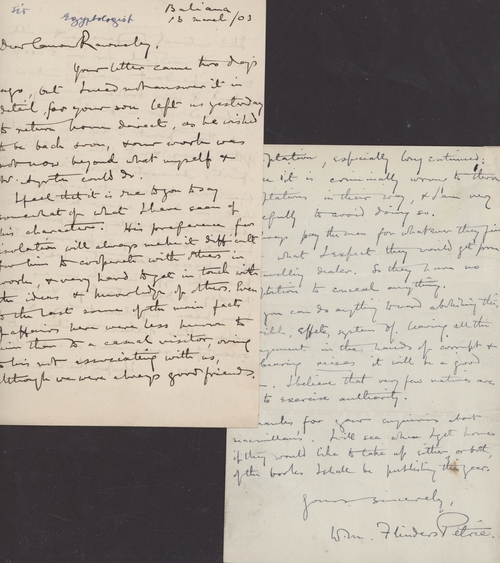 Sir
Egyptologist
Baliana
15 March /03
Dear Canon Rawnsley,
Your letter came two days
ago, but I need not answer it in
detail for your son left us yesterday
to return home direct, as he wished
to be back soon, & our work was
not now beyond what myself &
Mr. Ayrton could do.
I feel that it is due to you to say
somewhat of what I have seen of
his character. His preference for
isolation will always make it difficult
for him to cooperate with others in
work, & very hard to get in touch with
the ideas & knowledge of others. Even
to the last some of the main facts
of affairs here were less known to
him than to a casual visitor, owing
to his not associating with us,
although we were always good friends.
ptation, especially long continued;
it is criminally wrong to throw
ptations in their way, & I am very
efully to avoid doing so.
ways pay the men for whatever they find
what I expect they would get from
travelling dealer. So they have no
ptation to conceal anything.
you can do anything toward abolishing this
effete, system of leaving all the
agement in the hands of corrupt &
bearing reises it will be a good
I believe that very few natures are
to exercise authority.
thanks for your inquiries about
Macmillans. I will see when I get home
if they would like to take up either, or both,
of the books I shall be publishing this year.
Yours sincerely,
W.M. Flinders Petrie.